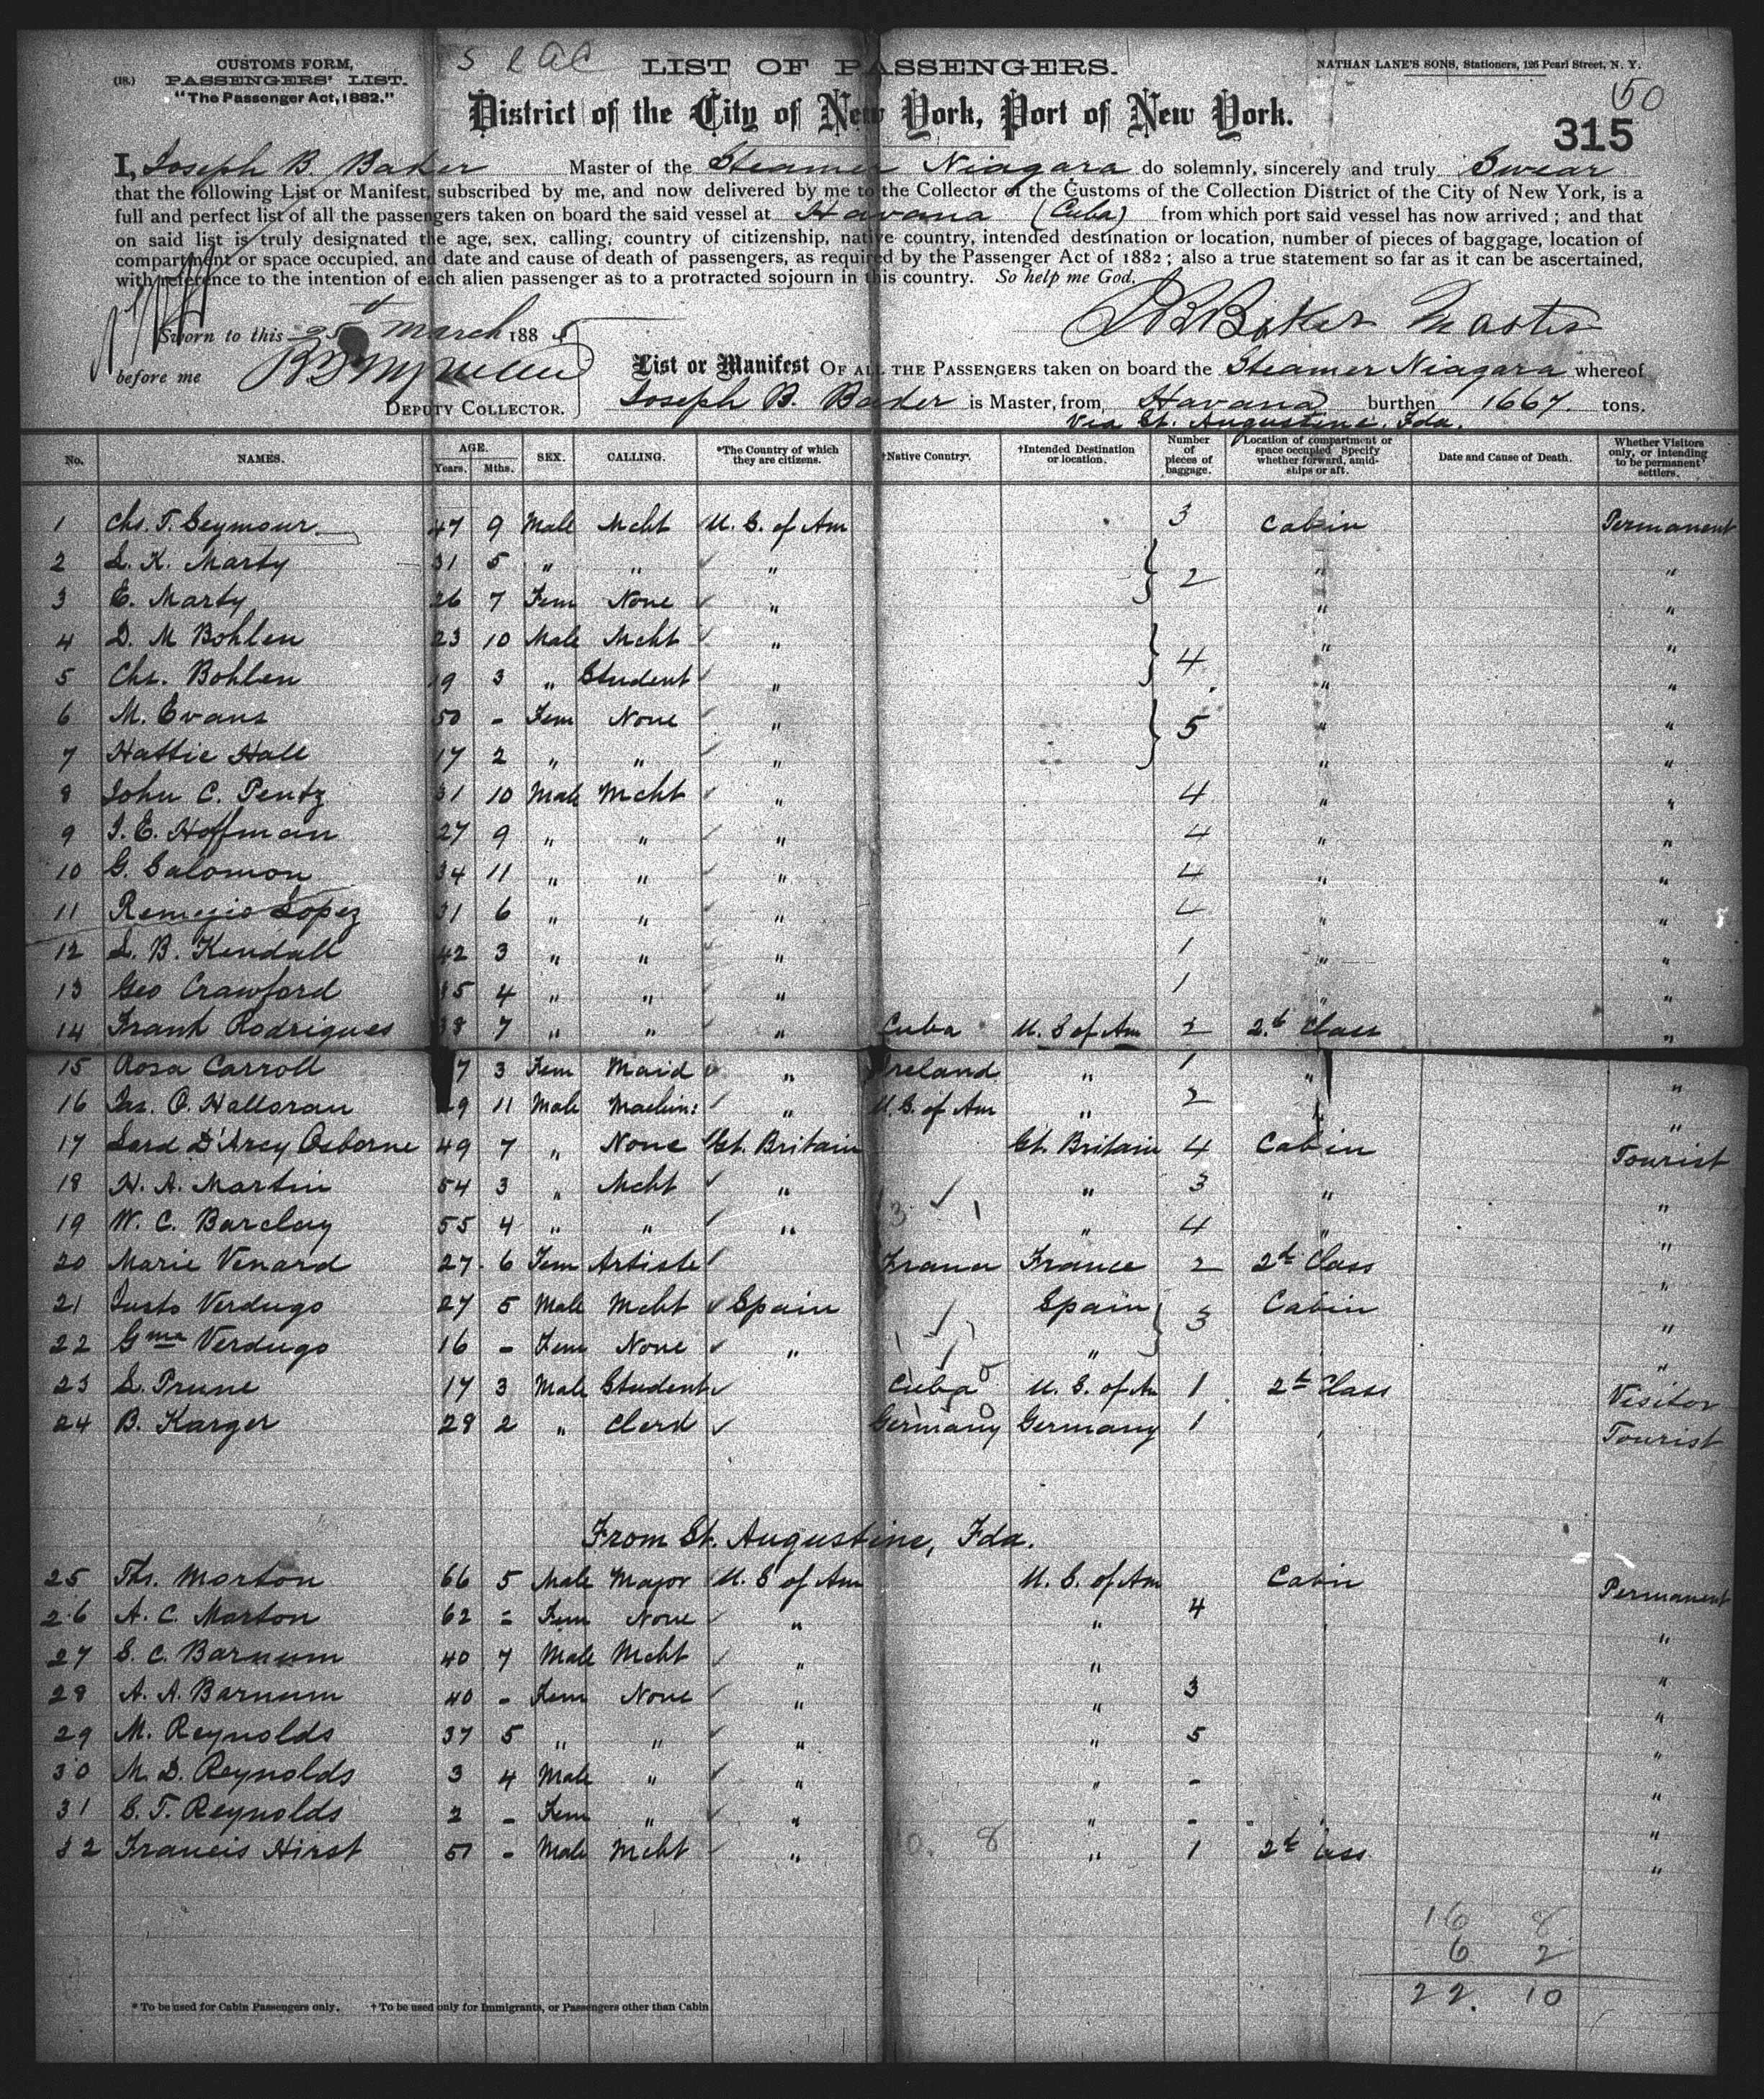 CUSTOMS FORM,
(18.) PASSENGERS' LIST.
"The Passenger Act, 1882."
LIST OF PASSENGERS.
NATHAN LANE'S SONS, Stationers, 126 Pearl Street, N. Y.
50
District of the City of New York, Port of New York.
315
I, Joseph B. Baker Master of the Steamer Niagara do solemnly, sincerely and truly Swear
that the following List or Manifest, subscribed by me, and now delivered by me to the Collector of the Customs of the Collection District of the City of New York, is a
full and perfect list of all the passengers taken on board the said vessel at Havana (Cuba) from which port said vessel has now arrived; and that
on said list is truly designated the age, sex, calling, country of citizenship, native country, intended destination or location, number of pieces of baggage, location of
compartment or space occupied, and date and cause of death of passengers, as required by the Passenger Act of 1882; also a true statement so far as it can be ascertained,
with reference to the intention of each alien passenger as to a protracted sojourn in this country. So help me God.
J B Baker Master
Sworn to this 25th March 1885
before me
DEPUTY COLLECTOR.
List or Manifest OF ALL THE PASSENGERS taken on board the Steamer Niagara whereof
Joseph B. Baker is Master, from Havana burthen 1667. tons.
Via St. Augustine, Fda.
No. NAMES. AGE. Years. Mths. SEX. CALLING. *The Country of which they are citizens. †Native Country. †Intended Destination or location. Number of pieces of baggage. Location of compartment or space occupied Specify whether forward, amidships or aft. Date and Cause of Death. Whether Visitors only, or intending to be permanent settlers.
1 Chs. T. Seymour 47 9 Male Mcht U. S. of Am 3 Cabin Permanent
2 L. K. Marty 31 5 " " " 2 " "
3 E. Marty 26 7 Fem None " " "
4 D. M Bohlen 23 10 Male Mcht " 4 " "
5 Chs. Bohlen 19 3 " Student " " "
6 M. Evans 50 - Fem None " 5 " "
7 Hattie Hall 17 2 " " " " "
8 John C. Pentz 31 10 Male Mcht " 4 " "
9 J. E. Hoffman 27 9 " " " 4 " "
10 G. Salomon 34 11 " " " 4 " "
11 Remegio Lopez 31 6 " " " 4 " "
12 L. B. Kendall 42 3 " " " 1 " "
13 Geo Crawford 35 4 " " " 1 " "
14 Frank Rodrigues 38 7 " " " Cuba U. S of Am 2 2.d Class "
15 Rosa Carroll 7 3 Fem Maid " Ireland " 1 " "
16 Jas. O. Halloran 29 11 Male Machin: " U. S. of Am " 2 "
17 Lord D'Arcy Osborne 49 7 " None Gt. Britain Gt. Britain 4 Cabin Tourist
18 H. A. Martin 54 3 " Mcht " " 3 " "
19 W. C. Barclay 55 4 " " " " 4 " "
20 Marie Venard 27 6 Fem Artiste France France 2 2d Class "
21 Justo Verdugo 27 5 Male Mcht Spain Spain 3 Cabin "
22 Gma Verdugo 16 - Fem None " " "
23 L. Prune 17 3 Male Student Cuba U. S. of Am 1 2d Class Visitor
24 B. Karger 28 2 " Clerk Germany Germany 1 Tourist
From St. Augustine, Fda.
25 Ths. Morton 66 5 Male Major U. S of Am U. S. of Am Cabin Permanent
26 A. C. Morton 62 - Fem None " " 4 "
27 S. C. Barnum 40 7 Male Mcht " " "
28 A. A. Barnum 40 - Fem None " " 3 "
29 M. Reynolds 37 5 " " " " 5 "
30 M. D. Reynolds 3 4 Male " " " - "
31 S. T. Reynolds 2 - Fem " " " - "
32 Francis Hirst 51 - Male Mcht " " 1 2d Class "
16 8
6 2
22. 10
* To be used for Cabin Passengers only. † To be used only for Immigrants, or Passengers other than Cabin